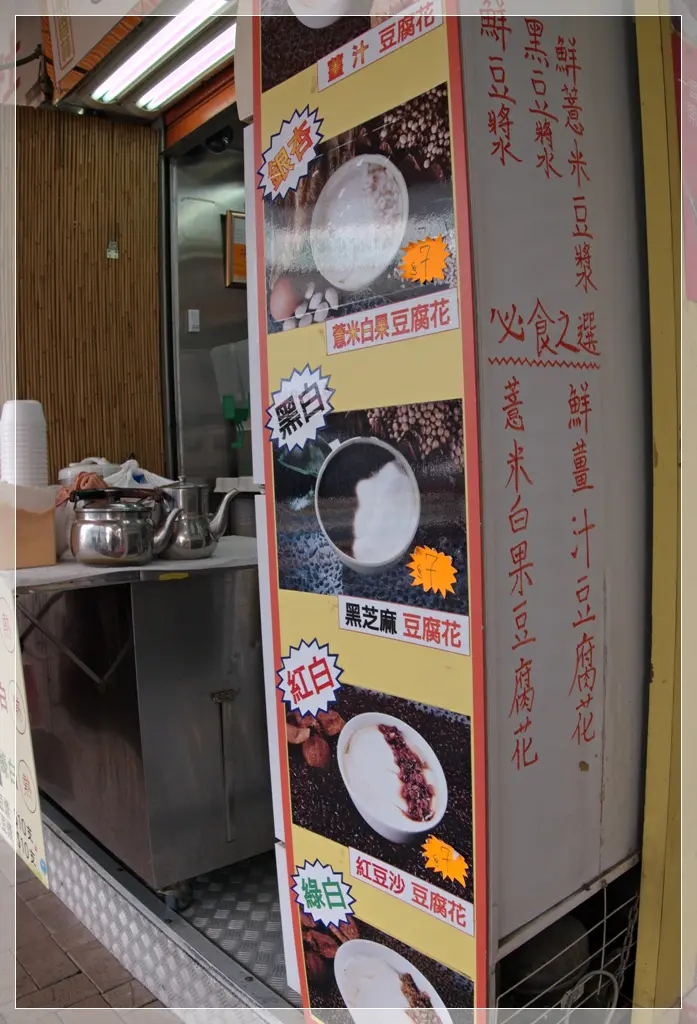 薑汁 豆腐花
銀杏
$7
薏米白果豆腐花
黑白
$7
黑芝麻 豆腐花
紅白
$7
紅豆沙 豆腐花
綠白
鮮薏米豆漿
黑豆漿
鮮豆漿
必食之選
鮮薑汁豆腐花
薏米白果豆腐花